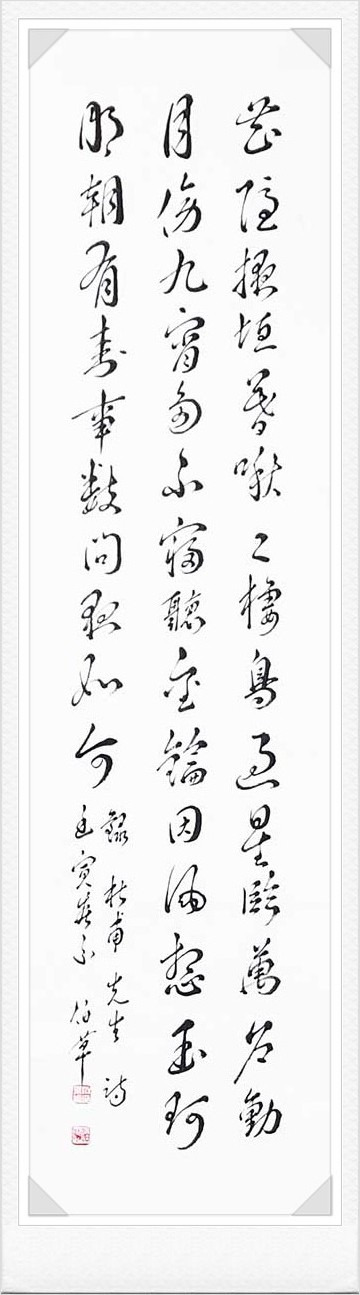 花隱掖垣暮啾〻棲鳥過星臨萬戶動
月傍九霄多不寢聽金鑰因風想玉珂
明朝有封事數問夜如何
錄杜甫先生詩
寅